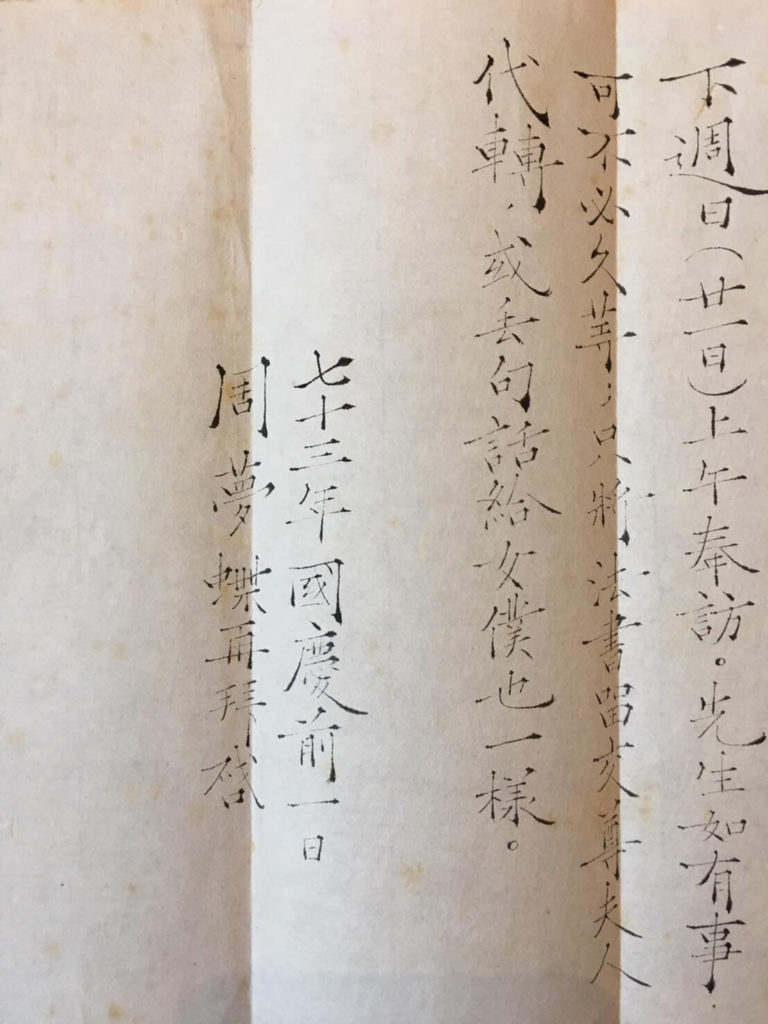 下週日（廿一日）上午奉訪。先生如有事，
可不必久等；只將法書留交尊夫人
代轉，或丢句話給女僕也一樣。
七十三年國慶前一日
周夢蝶再拜啓